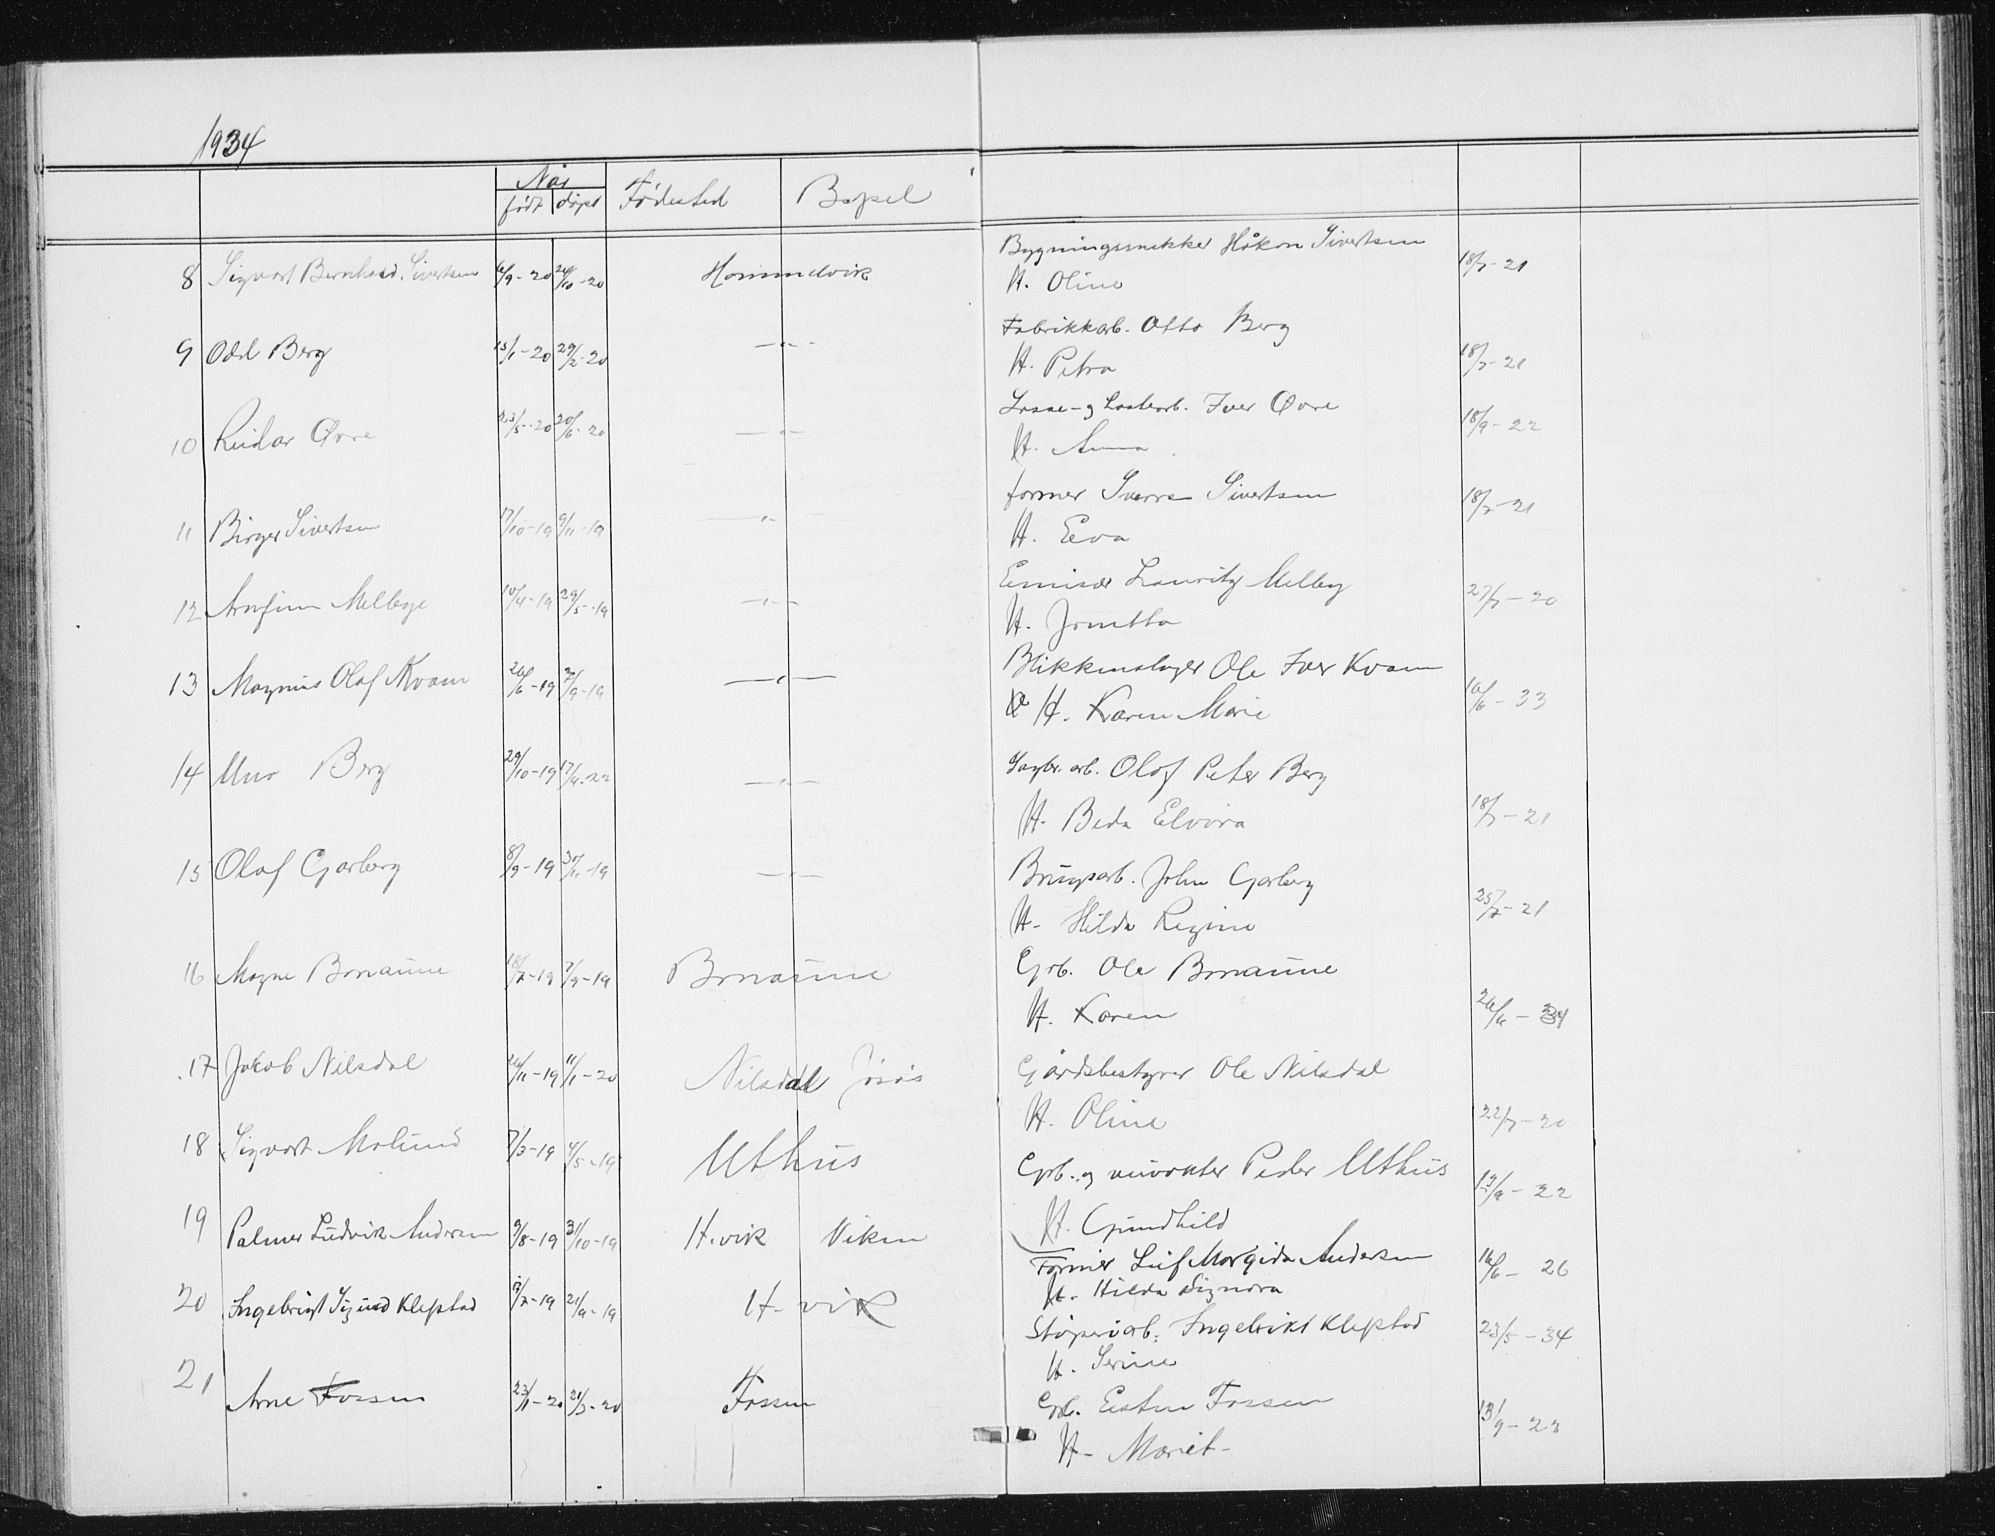 1934
Når
født døpt Fødested Bopel
8 Sigvart Bernhard Sivertsen 6/9-20 24/10-20 Hommelvik Bygningssnekker Håkon Sivertsen 18/7-21
H. Oline
9 Odd Berg 15/1-20 29/2-20 —"— Fabrikkarb. Otto Berg 18/7-21
H. Petra
10 Reidar Øvre 23/5-20 20/6-20 —"— Losse- og Lastearb. Iver Øvre 18/9-22
H. Anna
11 Birger Sivertsen 17/10-19 9/11-19 —"— former Sverre Sivertsen 18/7-21
H. Eva
12 Arnfinn Melbye 10/4-19 29/5-19 —"— Emisær Lauritz Melby 27/7-20
H. Jonetta
13 Magnus Olaf Kvam 26/6-19 7/9-19 —"— Blikkenslager Ole Iver Kvam 16/6-33
H. Karen Marie
14 Uno Berg 29/10-19 17/4-22 —"— Sagbr. arb. Olof Peter Berg 18/7-21
H. Beda Elvira
15 Olaf Garberg 8/9-19 30/11-19 —"— Brugsarb. John Garberg 25/7-21
H. Hilda Regine
16 Magne Bonaune 18/7-19 7/9-19 Bonaune Grb. Ole Bonaune 26/6-34
H. Karen
17 Jakob Nilsdal 26/11-19 11/1-20 Nilsdal Gårdsbestyrer Ole Nilsdal 22/7-20
H. Oline
18 Sigvart Molund 7/3-19 4/5-19 Uthus Grb. og Peder Uthus 13/9-22
H. Gundhild
19 Palmer Ludvik Andersen 9/8-19 31/10-19 H.vik Viken Former Leif Morgida Andersen 16/6-26
H. Hilda Signora
20 Ingebrigt Sigurd Klefstad 12/7-19 21/9-19 H.vik Støperiarb. Ingebrikt Klefstad 23/5-34
H. Serine
21 Arne Fossen 23/1-20 21/3-20 Fossen Grb. Esten Fossen 13/9-23
H. Mariet